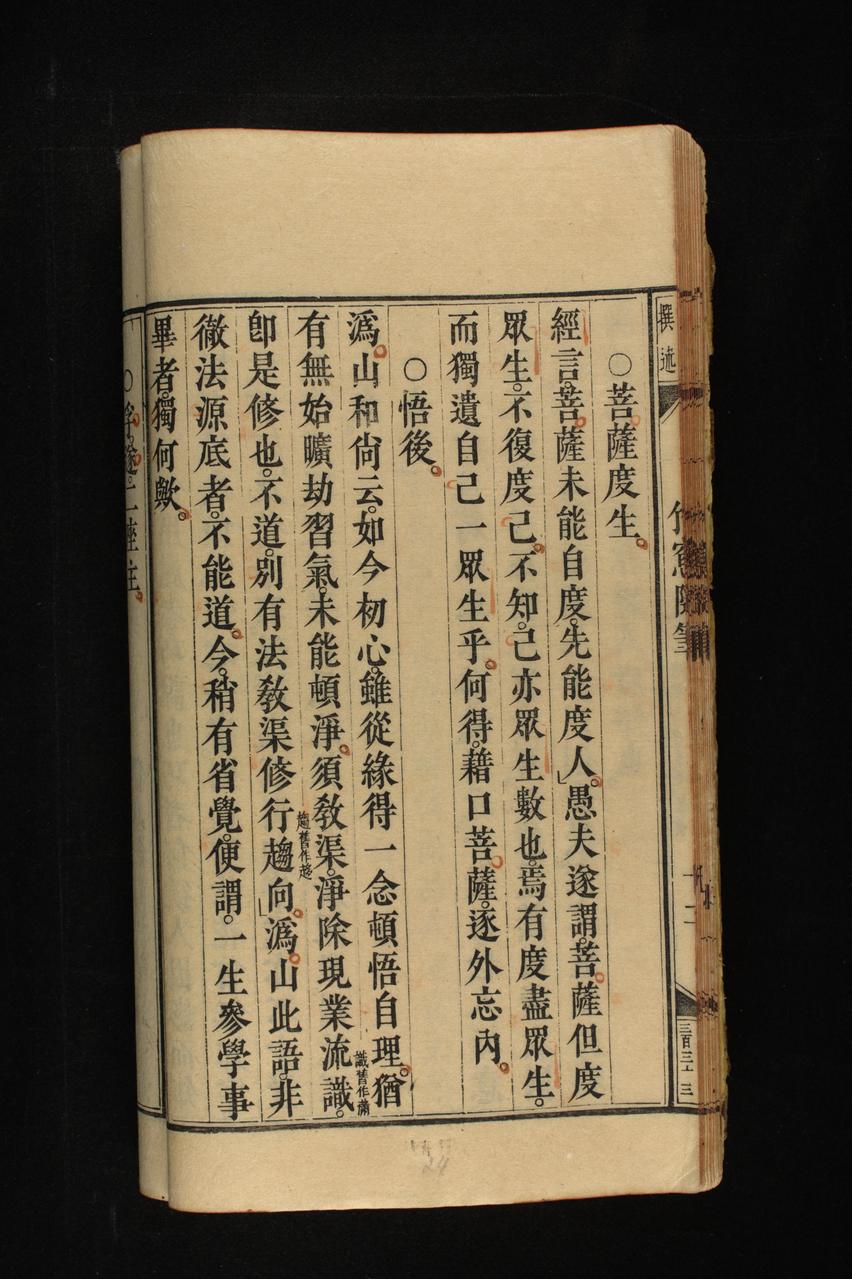 撰述
竹窻隨筆
十二
三百三十三
○菩薩度生。
經言。菩薩未能自度。先能度人。」愚夫遂謂。菩薩但度
眾生。不復度己。不知。己亦眾生數也。焉有度盡眾生。
而獨遺自己一眾生乎。何得。藉口菩薩。逐外忘內。
○悟後。
溈山和尚云。如今初心。雖從緣得一念頓悟自理。猶
有無始曠劫習氣。未能頓淨。須教渠。淨除現業流識。
識舊作蕭
卽是修也。不道。別有法教渠修行趨向。」溈山此語。非
趨舊作趍
徹法源底者。不能道。今。稍有省覺。便謂。一生參學事
畢者。獨何歟。
24